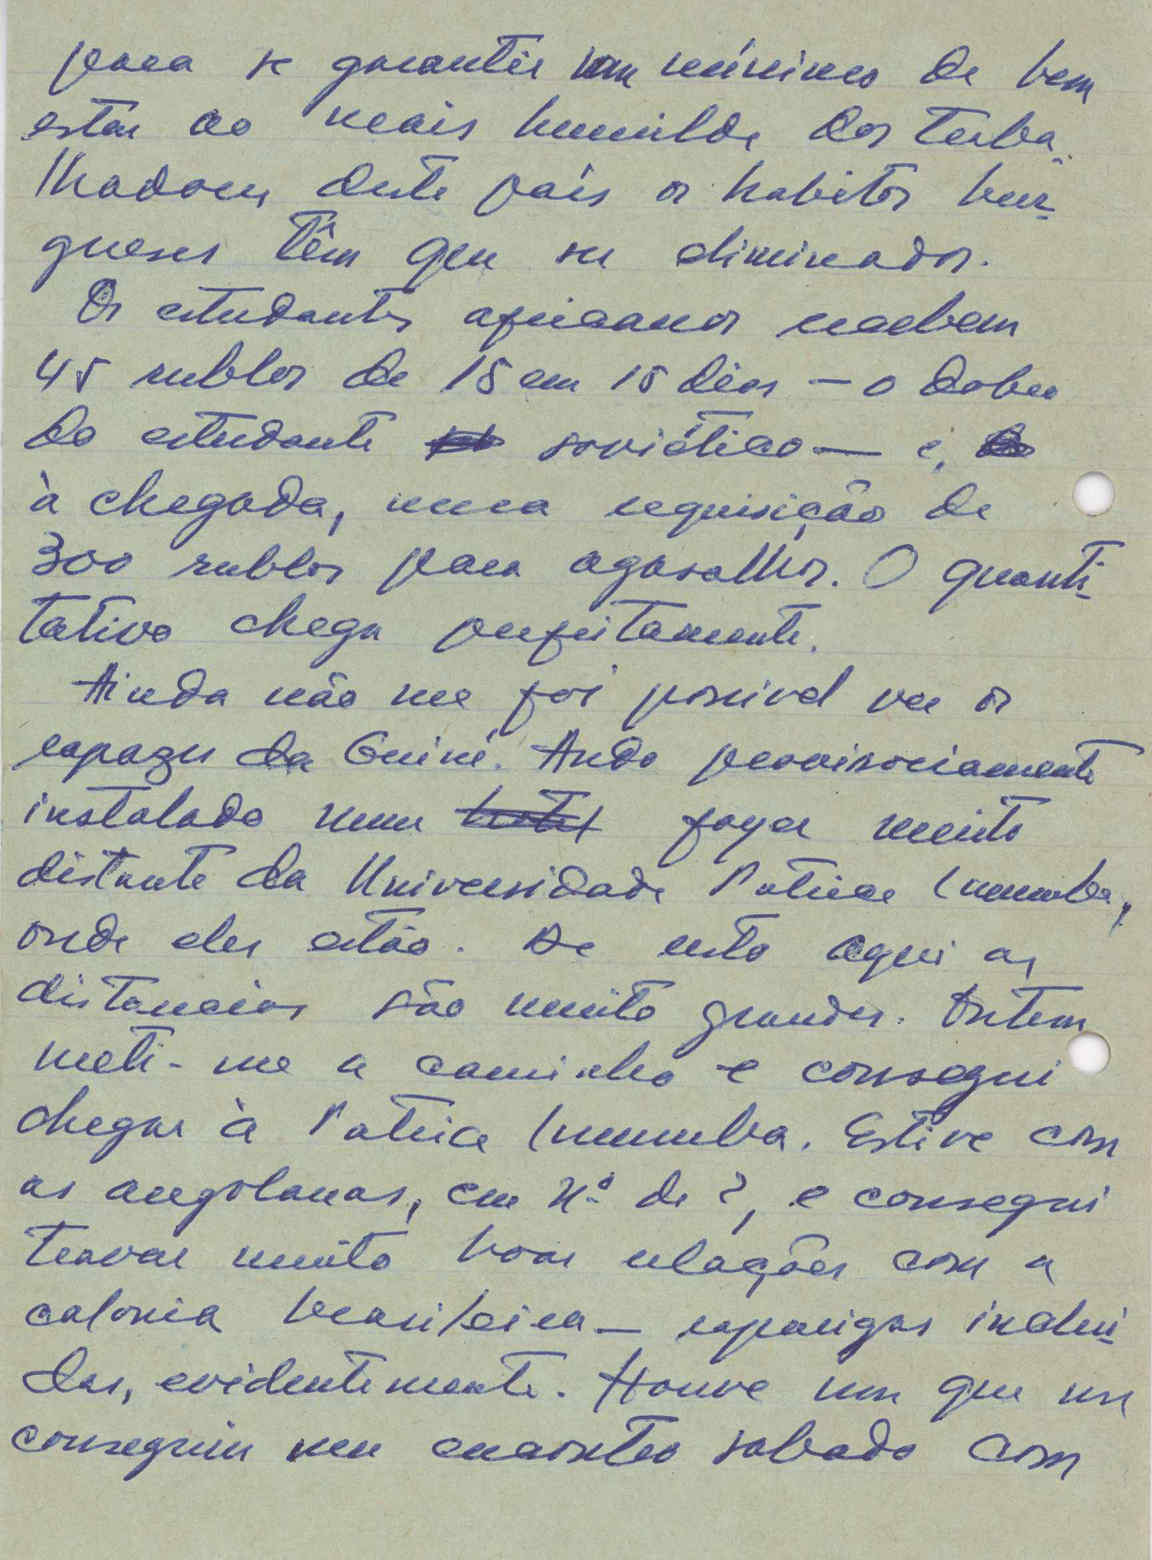 para se garantir um mínimo de bem
estar ao mais humilde dos traba-
lhadores deste país os habitos bur-
gueses têm que ser eliminados.
Os estudantes africanos recebem
45 rublos de 15 em 15 dias — o dobro
do estudante soviético — e,
à chegada, uma requisição de
300 rublos para agasalhos. O quanti-
tativo chega perfeitamente.
Ainda não me foi possivel ver os
rapazes da Guiné. Ando provisoriamente
instalado num hotel foyer muito
distante da Universidade Patrice Lumumba,
onde eles estão. De resto aqui as
distancias são muito grandes. Ontem
meti-me a caminho e consegui
chegar à Patrice Lumumba. Estive com
as angolanas, em nº de 2, e consegui
travar muito boas relações com a
colonia brasileira — raparigas inclui-
das, evidentemente. Houve um que me
conseguiu um encontro sabado com